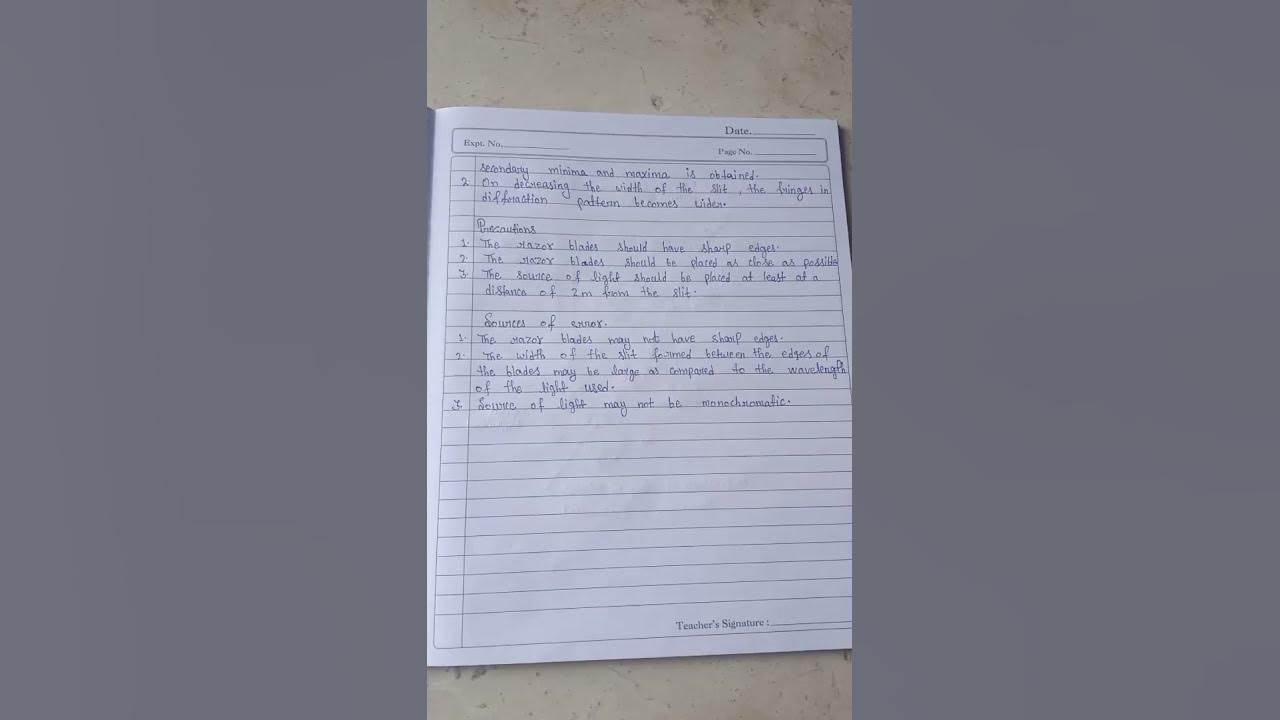 Date.
Expt. No.
Page No.
secondary minima and maxima is obtained.
2. On decreasing the width of the slit, the fringes in
diffraction pattern becomes wider.
Precautions
1. The razor blades should have sharp edges.
2. The razor blades should be placed as close as possible
3. The source of light should be placed at least at a
distance of 2m from the slit.
Sources of error.
1. The razor blades may not have sharp edges.
2. The width of the slit formed between the edges of
the blades may be large as compared to the wavelength
of the light used.
3. Source of light may not be monochromatic.
Teacher's Signature :